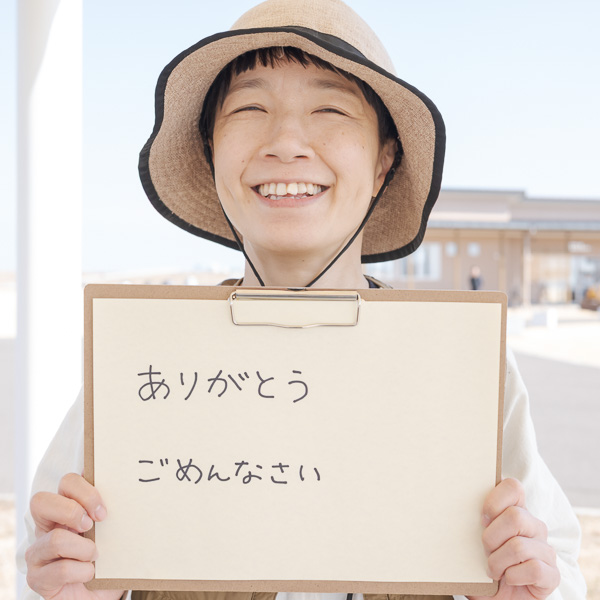 ありがとう
ごめんなさい